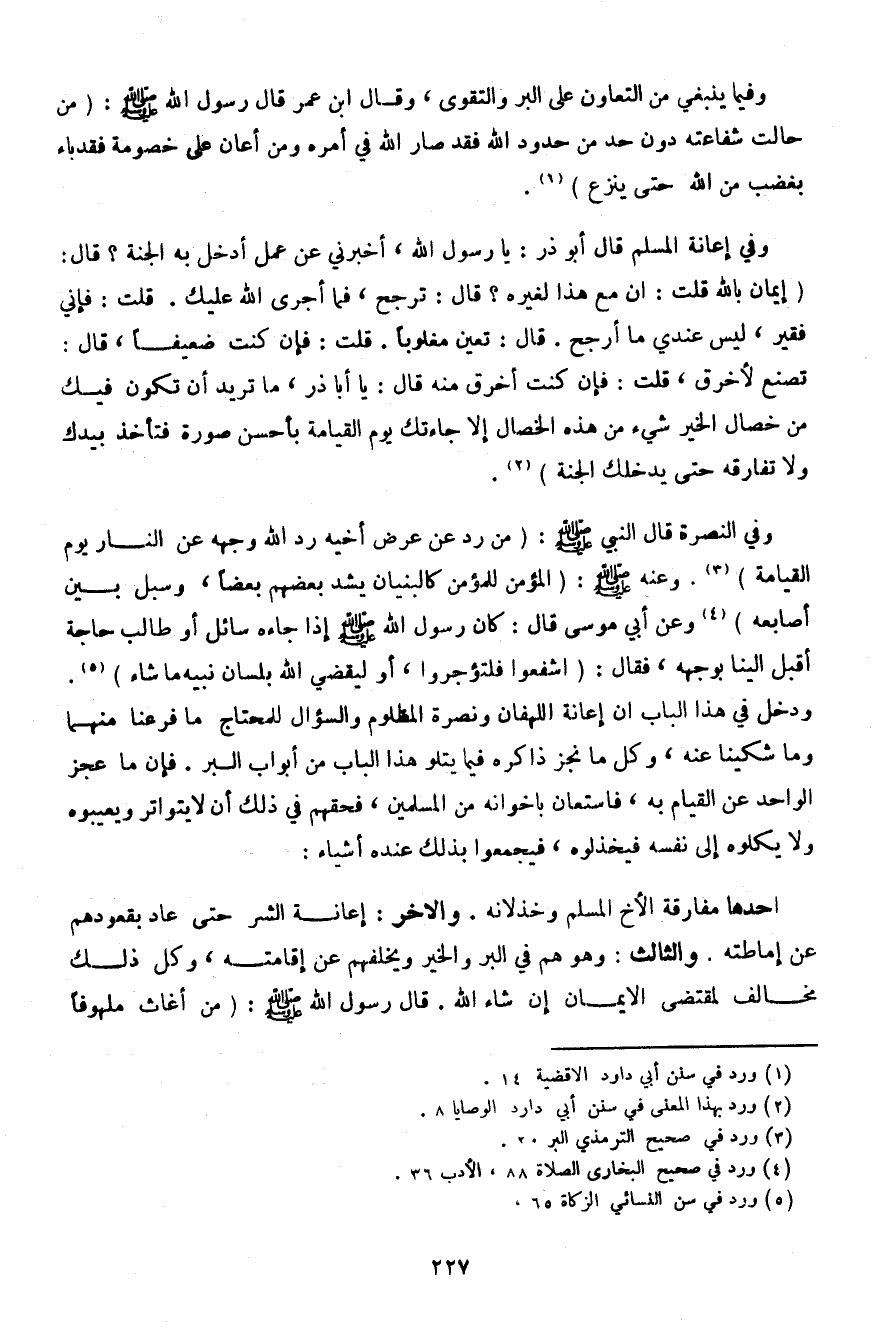 وفيما ينبغي من التعاون على البر والتقوى ، وقـال ابن عمر قال رسول الله ﷺ : ( من
حالت شفاعته دون حد من حدود الله فقد صار الله في أمره ومن أعان على خصومة فقدباء
بغضب من الله حتى ينزع ) (١) .
وفي إعانة المسلم قال أبو ذر : يا رسول الله ، أخبرني عن عمل أدخل به الجنة ؟ قال :
( إيمان بالله قلت : ان مع هذا لغيره ؟ قال : ترجح ، فما أجرى الله عليك . قلت : فإني
فقير ، ليس عندي ما أرجح . قال : تعين مغلوباً . قلت : فإن كنت ضعيفـــاً ، قال :
تصنع لأخرق ، قلت : فإن كنت أخرق منه قال : يا أبا ذر ، ما تريد أن تكون فيـــك
من خصال الخير شيء من هذه الخصال إلا جاءتك يوم القيامة بأحسن صورة فتأخذ بيدك
ولا تفارقه حتى يدخلك الجنة ) (٢) .
وفي النصرة قال النبي ﷺ : ( من رد عن عرض أخيه رد الله وجهه عن النـــار يوم
القيامة ) (٣) . وعنه ﷺ : ( المؤمن للمؤمن كالبنيان يشد بعضهم بعضاً ، وسبل بـــين
أصابعه ) (٤) وعن أبي موسى قال : كان رسول الله ﷺ إذا جاءه سائل أو طالب حاجة
أقبل الينا بوجهه ، فقال : ( اشفعوا فلتؤجروا ، أو ليقضي الله بلسان نبيه ما شاء ) (٥) .
ودخل في هذا الباب ان إعانة اللهفان ونصرة المظلوم والسؤال للمحتاج ما فرعنا منهـما
وما شكينا عنه ، وكل ما نجز ذاكره فيما يتلو هذا الباب من أبواب الـــبر . فإن ما عجز
الواحد عن القيام به ، فاستعان باخوانه من المسلمين ، فحقهم في ذلك أن لايتواتر ويعيبوه
ولا يكلوه إلى نفسه فيخذلوه ، فيجمعوا بذلك عنده أشياء :
احدها مفارقة الأخ المسلم وخذلانه . والاخر : إعانـــة الشر حتى عاد بقعودهم
عن إماطته . والثالث : وهو هم في البر والخير ويخلفهم عن إقامتـــه ، وكل ذلـــك
مخـــالف لمقتضى الايمـــان إن شاء الله . قال رسول الله ﷺ : ( من أغاث ملهوفاً
(١) ورد في سنن أبي داود الاقضية ١٤ .
(٢) ورد بهذا المعنى في سنن أبي دارد الوصايا ٨ .
(٣) ورد في صحيح الترمذي البر ٢٠ .
(٤) ورد في صحيح البخارى الصلاة ٨٨ ، الأدب ٣٦ .
(٥) ورد في سن النسائي الزكاة ٦٥ .
٢٢٧